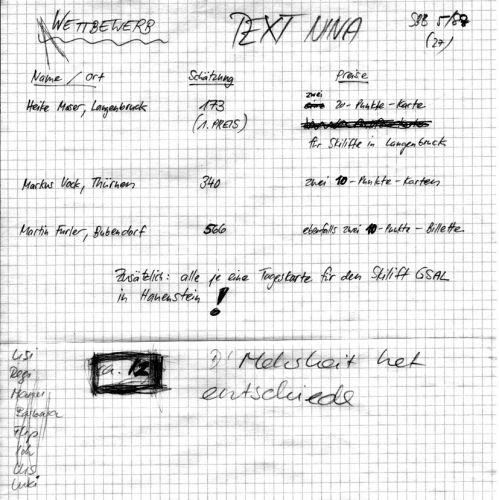 WETTBEWERB
TEXT NINA
SBB 5/88
(27)
Name / Ort
Schätzung
Preise
Heite Moser, Langenbruck
173
(1. PREIS)
zwei
20-Punkte-Karte
für Skilifte in Langenbruck
Markus Vock, Thürnen
340
zwei 10-Punkte-Karten
Martin Furler, Bubendorf
566
ebenfalls zwei 10-Punkte-Billette
Zusätzlich: alle je eine Tageskarte für den Skilift GSAL
in Hauenstein!
Barbara
Ich
Urs
ca. 12
D' Mehrheit het
entschiede